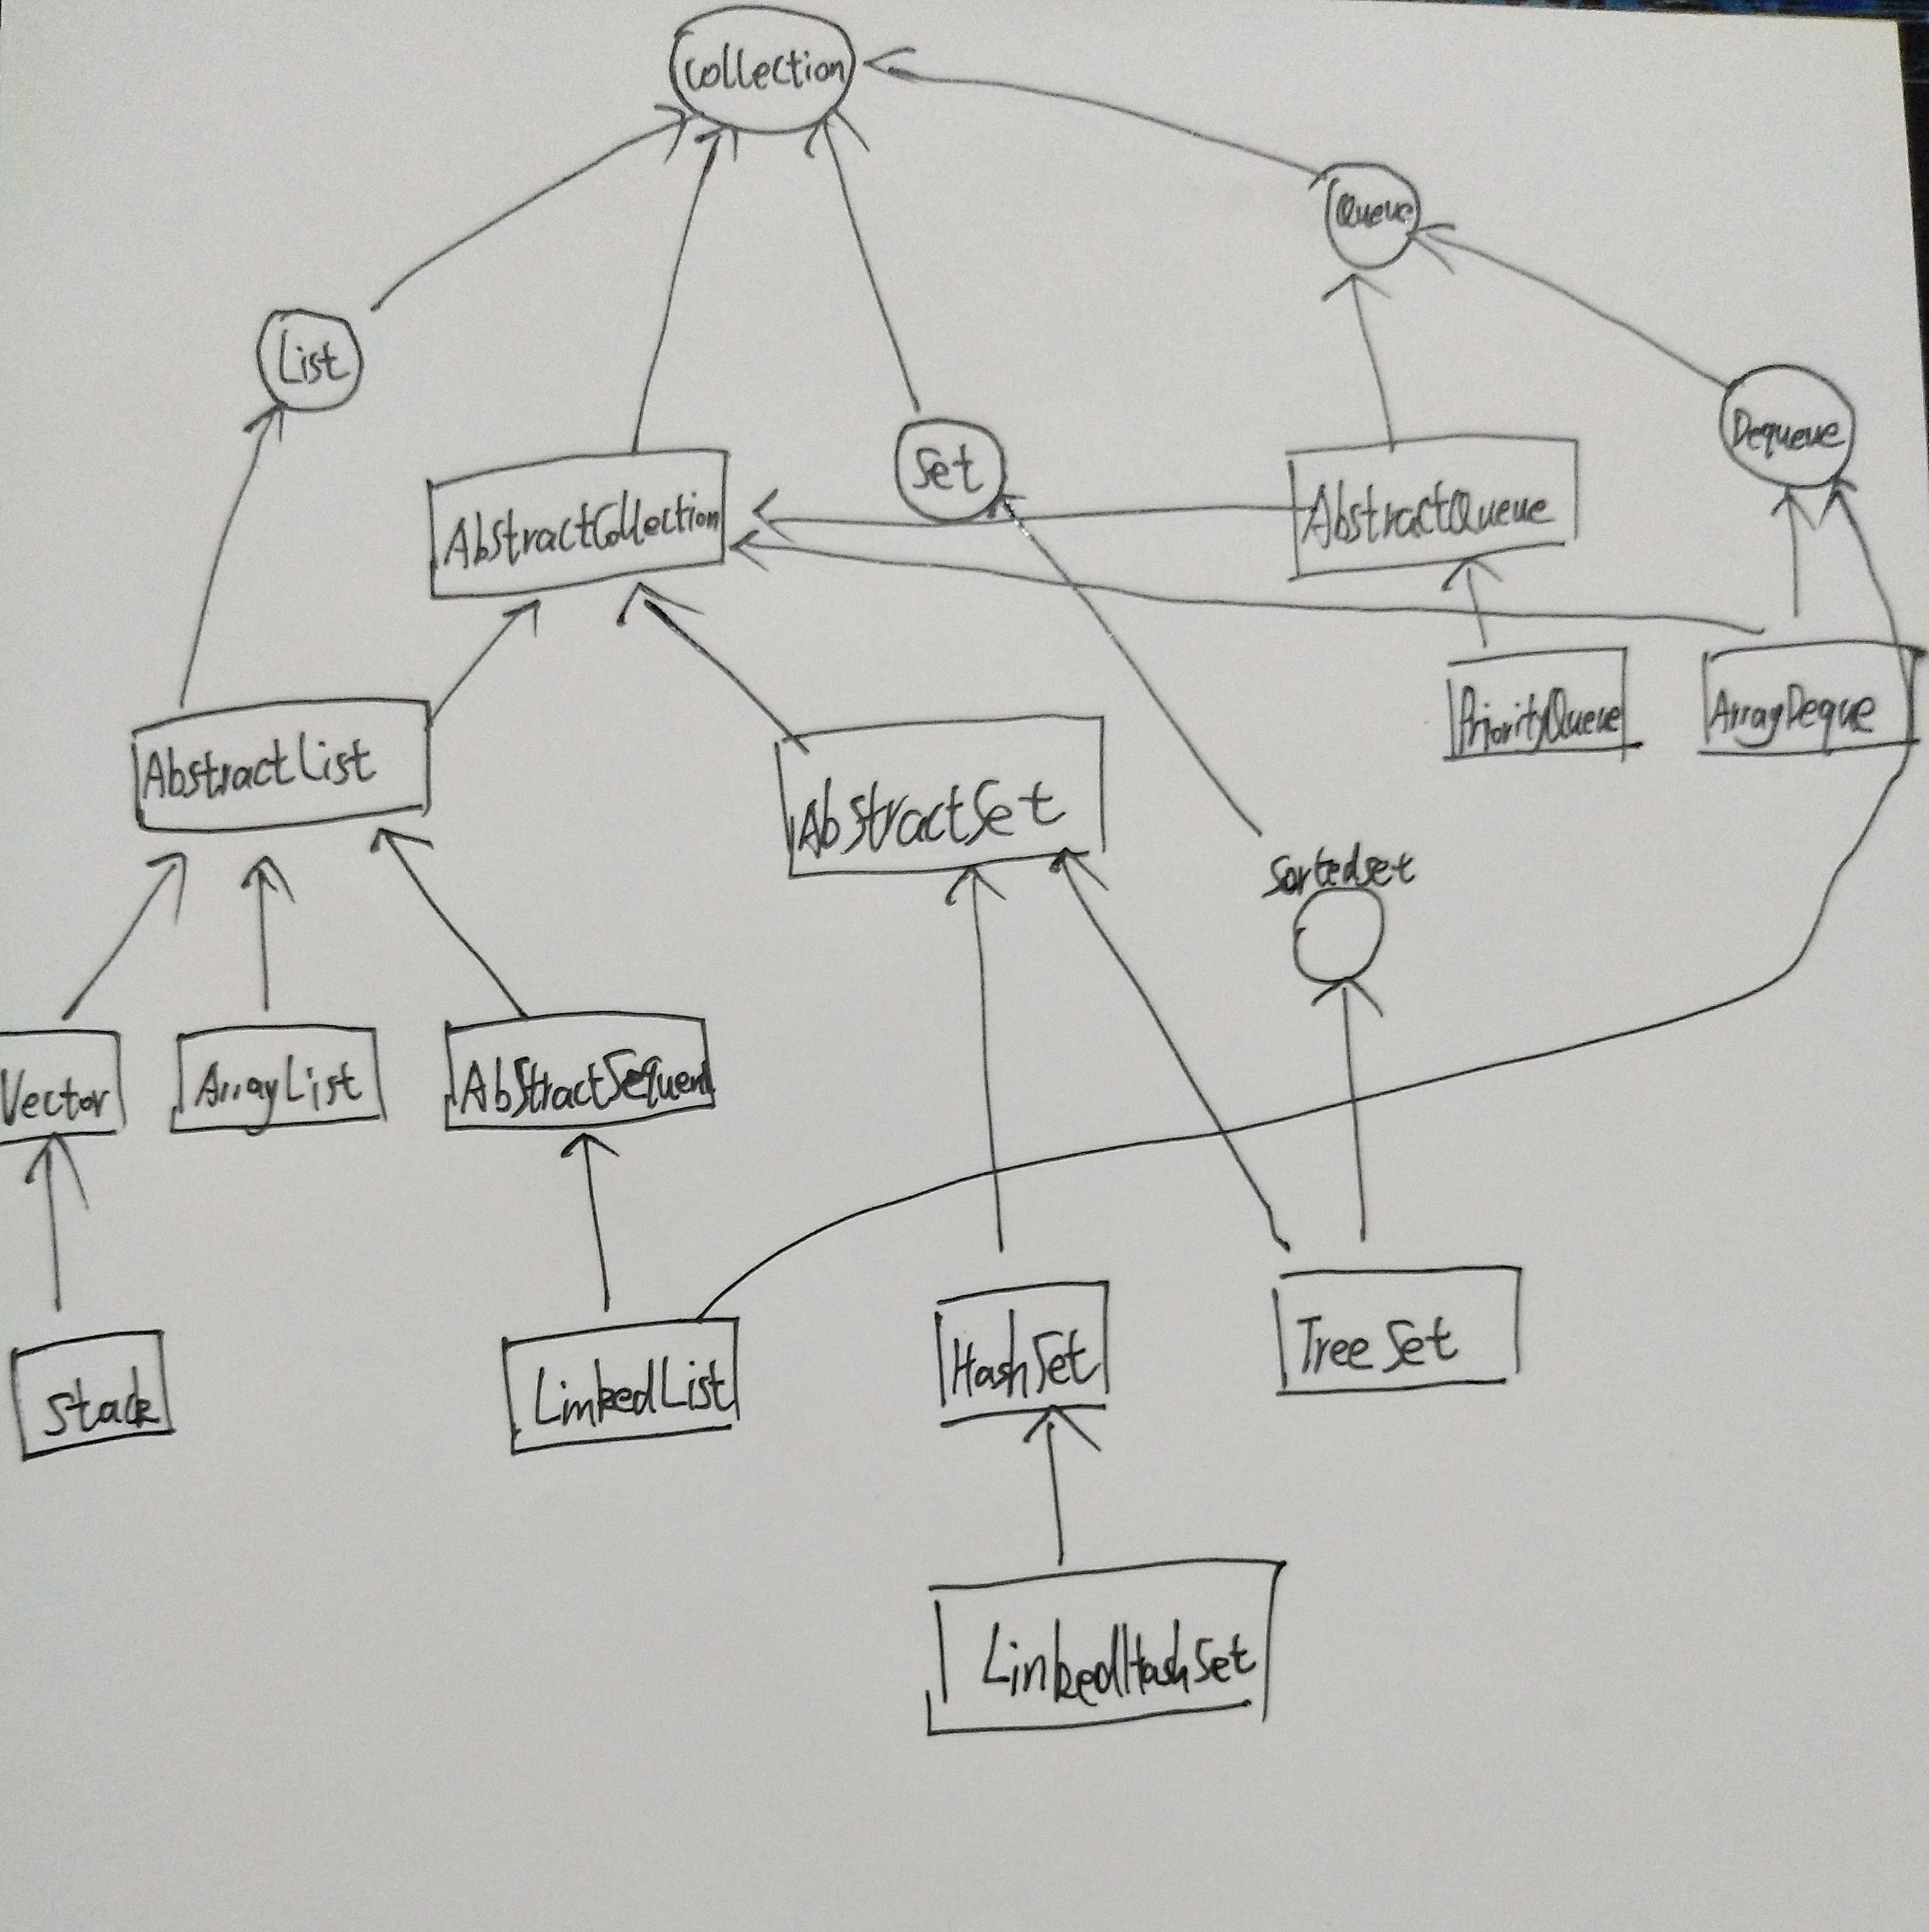 Collection
Queue
List
Dequeue
Set
AbstractCollection
AbstractQueue
PriorityQueue
ArrayDeque
AbstractList
AbstractSet
Sortedset
Vector
ArrayList
AbstractSequen
Stack
LinkedList
HashSet
TreeSet
LinkedHashSet